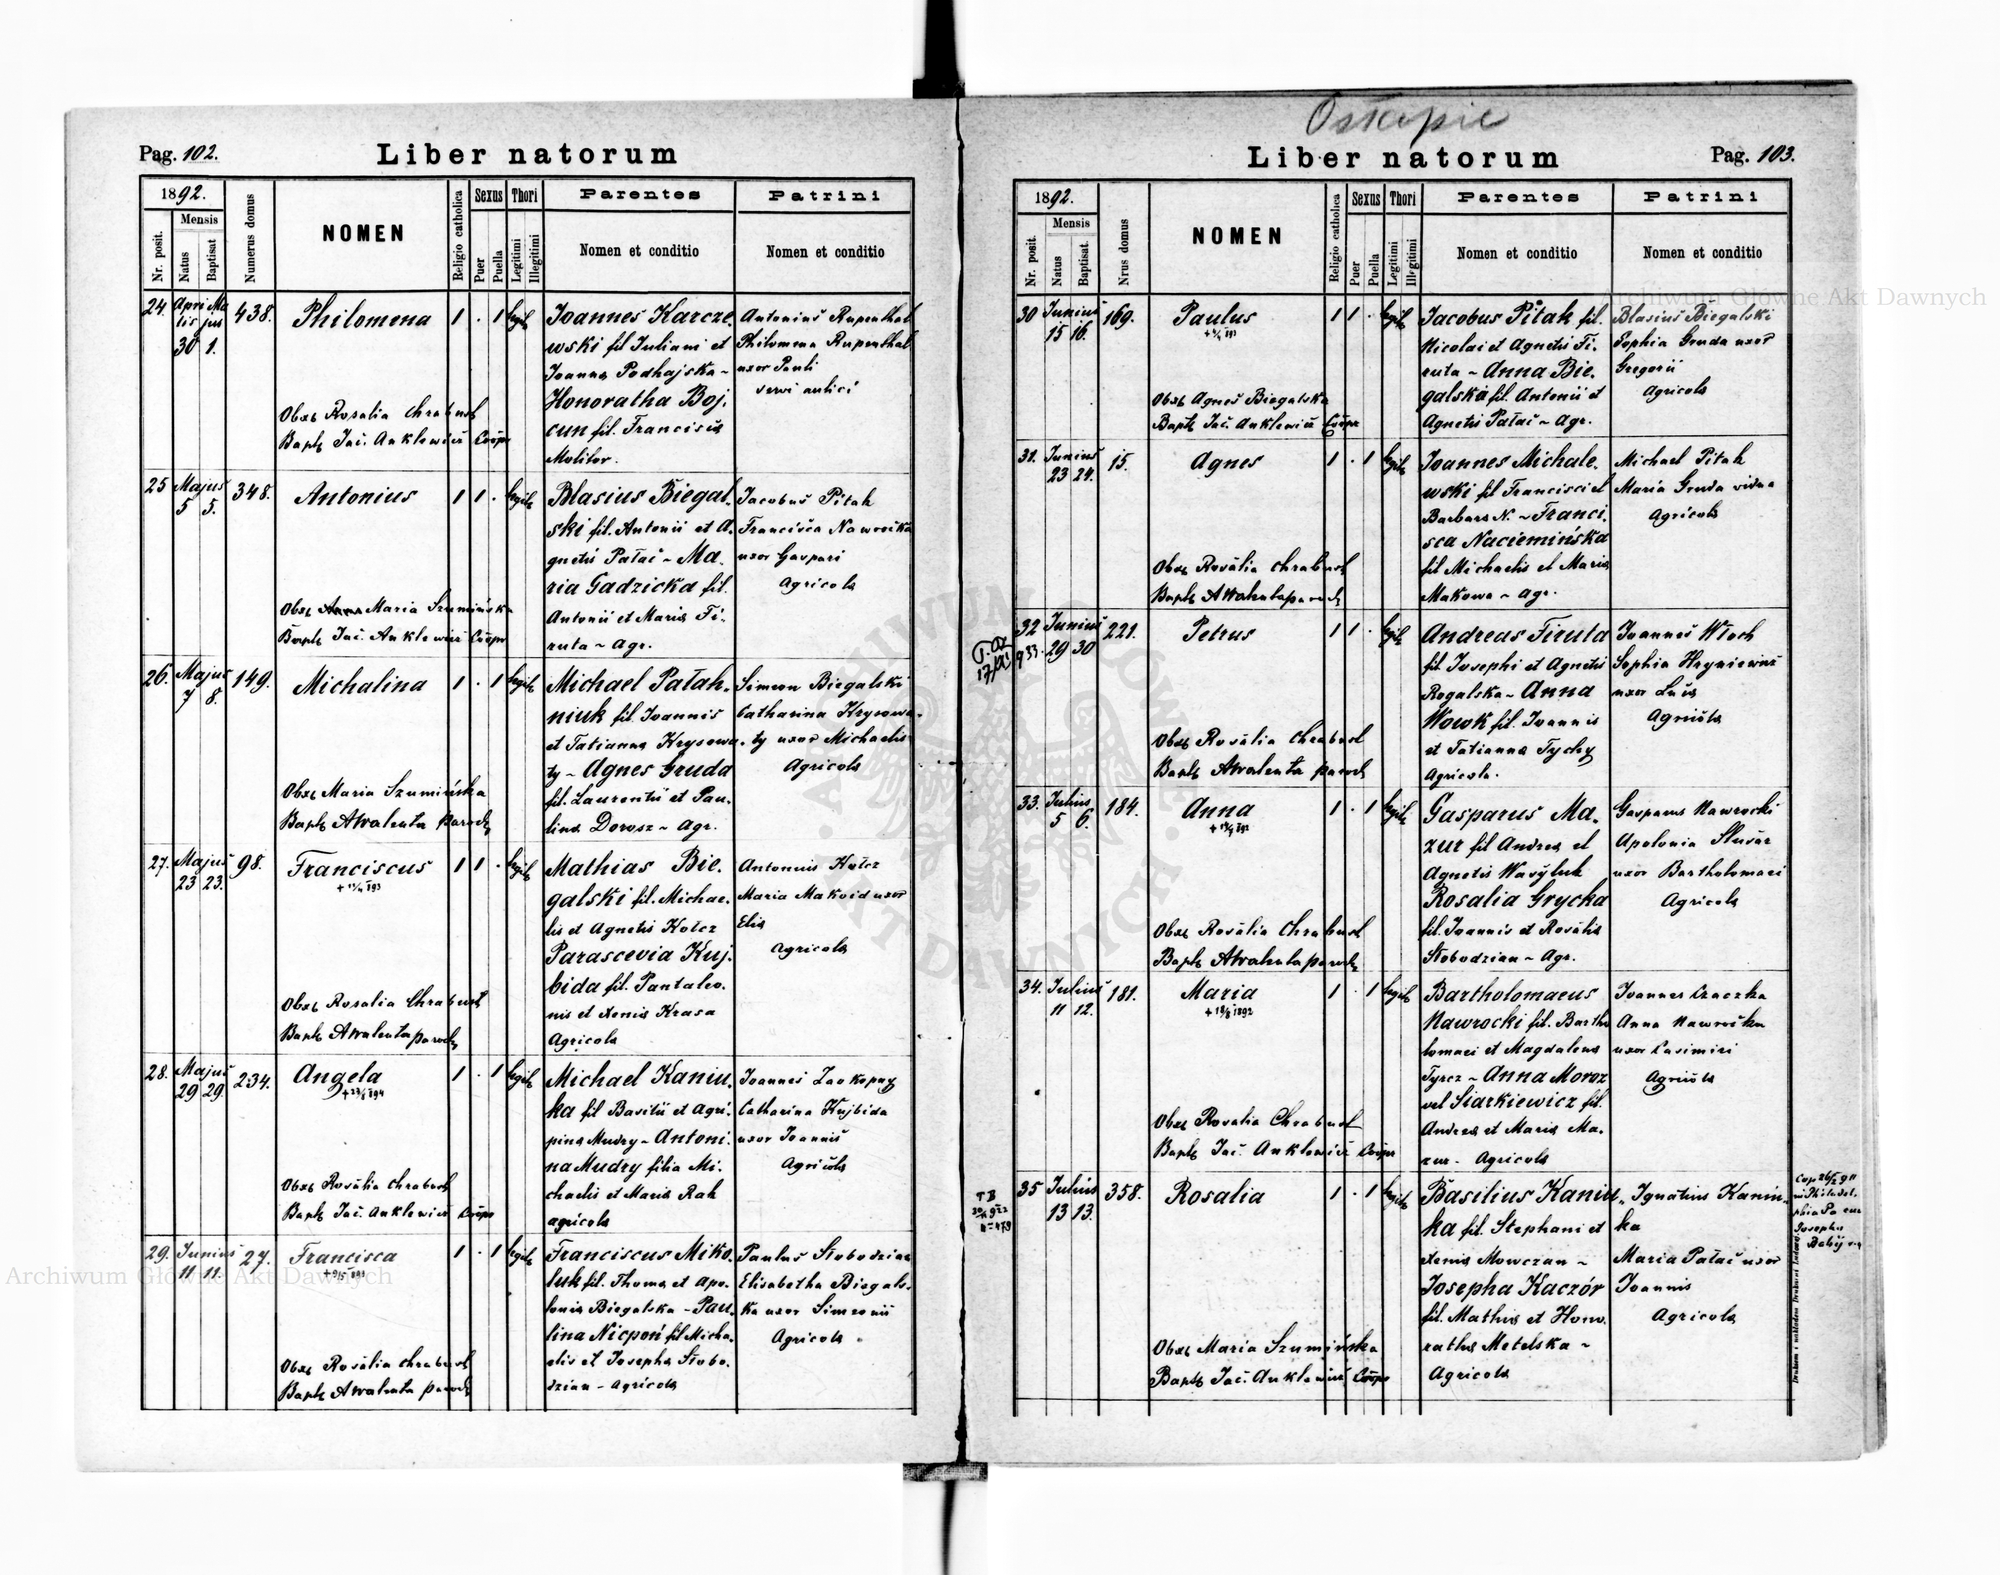 Pag. 102.
Liber natorum
1892.
Mensis
Nr. posit.
Natus
Baptisat
Numerus domus
NOMEN
Religio catholica
Sexus
Puer
Puella
Thori
Legitimi
Illegitimi
Parentes
Nomen et conditio
Patrini
Nomen et conditio
24. Aprilis 30 Majus 1. 438. Philomena 1 . 1 legit
Joannes Karcze.
wski fil Juliani et
Joanna Podhajska ~
Honoratha Boj.
cun fil. Francisci
Molitor.
Antonius Rupenthal
Philomena Rupenthal
uxor Pauli
servi aulici
Obst Rosalia Chrabust
Bapt Jac. Anklewicz Coop
25 Majus 5 5. 348. Antonius 1 1 . legit
Blasius Biegal.
ski fil. Antonii et A.
gnetis Pałac ~ Ma.
ria Gadzicka fil.
Antonii et Maria Fi.
ruta ~ Agr.
Jacobus Pitak
Francisca Nawrocka
uxor Gaspari
Agricola
Obst Maria Szumińska
Bapt Jac. Anklewicz Coop
26. Majus 7 8. 149. Michalina 1 . 1 legit
Michael Pałah.
niuk fil. Joannis
et Tatianna Krysowa.
ty ~ Agnes Gruda
fil. Laurentii et Pau.
lina Dorosz ~ Agr.
Simeon Biegalski
Catharina Krysowa.
ty uxor Michaelis
Agricola
Obst Maria Szumińska
Bapt A Walenta Paroch
27. Majus 23 23. 98. Franciscus 1 1 . legit
Mathias Bie.
galski fil. Michae.
lis et Agnetis Kołcz
Parascevia Kuj.
bida fil. Pantaleo.
nis et Xenia Krasa
Agricola
Antonius Kołcz
Maria Makoid uxor
Elia
Agricola
Obst Rosalia Chrabust
Bapt A Walenta paroch
28. Majus 29 29. 234. Angela 1 . 1 legit
Michael Kaniu.
ka fil Basilii et Agri.
pina Mudry ~ Antoni.
na Mudry filia Mi.
chaelis et Maria Rak
agricola
Joannes Zaokopny
Catharina Kujbida
uxor Joannis
Agricola
Obst Rosalia Chrabust
Bapt Jac. Anklewicz Coop
29. Junius 11 11. 27. Francisca 1 . 1 legit
Franciscus Miko.
luk fil. Thoma et Apo.
lonia Biegalska ~ Pau.
lina Nicpoń fil Micha.
elis et Josepha Słobo.
dzian ~ Agricola
Paulus Słobodzian
Elisabetha Biegals.
ka uxor Simeonis
Agricola
Obst Rosalia Chrabust
Bapt A Walenta paroch
Ostapie
Liber natorum
Pag. 103.
1892.
Mensis
Nr. posit.
Natus
Baptisat.
Nrus domus
NOMEN
Religio catholica
Sexus
Puer
Puella
Thori
Legitimi
Illegitimi
Parentes
Nomen et conditio
Patrini
Nomen et conditio
30 Junius 15 16. 169. Paulus 1 1 . legit
Jacobus Pitak fil.
Nicolai et Agnetis Fi.
ruta ~ Anna Bie.
galska fil. Antonii et
Agnetis Pałac ~ Agr.
Blasius Biegalski
Sophia Gruda uxor
Gregorii
Agricola
Obst Agnes Biegalska
Bapt Jac. Anklewicz Coop
31. Junius 23 24. 15. Agnes 1 . 1 legit
Joannes Michale.
wski fil Francisci et
Barbara N. ~ Franci.
sca Naciemińska
fil Michaelis et Maria
Makowa ~ agr.
Michael Pitak
Maria Gruda vidua
Agricola
Obst Rosalia Chrabust
Bapt A Walenta paroch
32 Junius 29 30 221. Petrus 1 1 . legit
Andreas Firuta
fil. Josephi et Agnetis
Rogalska ~ Anna
Wowk fil. Joannis
et Tatianna Tychy
Agricola.
Joannes Włoch
Sophia Hryniewicz
uxor Luca
Agricola
Obst Rosalia Chrabust
Bapt A Walenta paroch
33. Julius 5 6. 184. Anna 1 . 1 legit
Gasparus Ma.
zur fil Andrea et
Agnetis Wasyluk
Rosalia Grycka
fil. Joannis et Rosalia
Słobodzian ~ Agr.
Gasparus Nawrocki
Apolonia Slusar
uxor Bartholomaei
Agricola
Obst Rosalia Chrabust
Bapt A Walenta paroch
34. Julius 11 12. 181. Maria 1 . 1 legit
+ 18/8 1892
Bartholomaeus
Nawrocki fil. Bartho
lomaei et Magdalena
Tyrcz ~ Anna Moroz
vel Siarkiewicz fil.
Andrea et Maria Ma.
zur ~ Agricola
Joannes Czaczka
Anna Nawrocka
uxor Casimiri
Agricola
Obst Rosalia Chrabust
Bapt Jac. Anklewicz Coop
35 Julius 13 13. 358. Rosalia 1 . 1 legit
Basilius Kaniu.
ka fil. Stephani et
Xenia Mowczan ~
Josepha Kaczór
fil. Mathia et Hono.
ratha Metelska ~
Agricola
Ignatius Kaniu.
ka
Maria Pałac uxor
Joannis
Agricola
Obst Maria Szumińska
Bapt Jac. Anklewicz Coop
Archiwum Główne Akt Dawnych
Archiwum Główne Akt Dawnych
ARCHIWUM GŁÓWNE AKT DAWNYCH